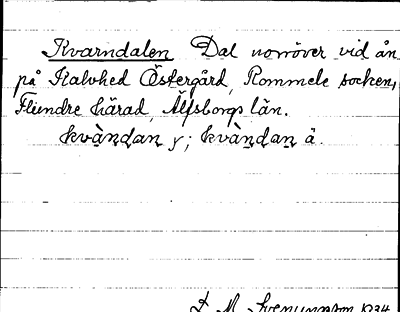 Kvarndalen Dal norröver vid ån
på Kalvhed Östergård, Rommele socken,
Flundre härad, Älfsborgs län.
kvàṇdan y; kvàṇdaṇ å.
D. M. Svenungsson 1934